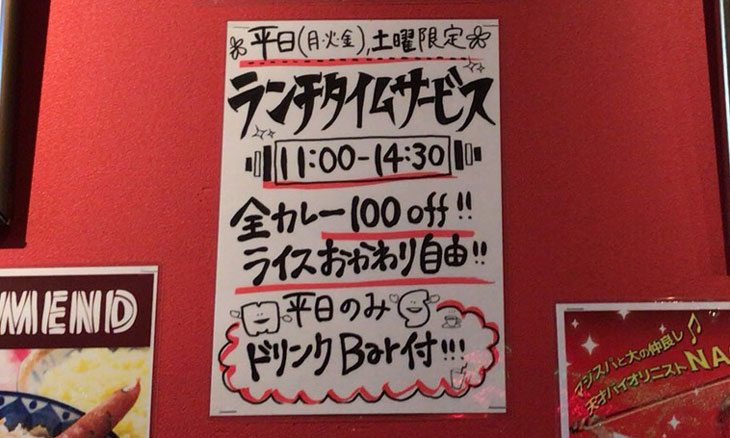 平日(月・火・金),土曜限定
ランチタイムサービス
11:00-14:30
全カレー100off!!
ライスおかわり自由!!
平日のみ
ドリンクBar付!!!
MEND
マジスパと大の仲良し♪
天才バイオリニストNA